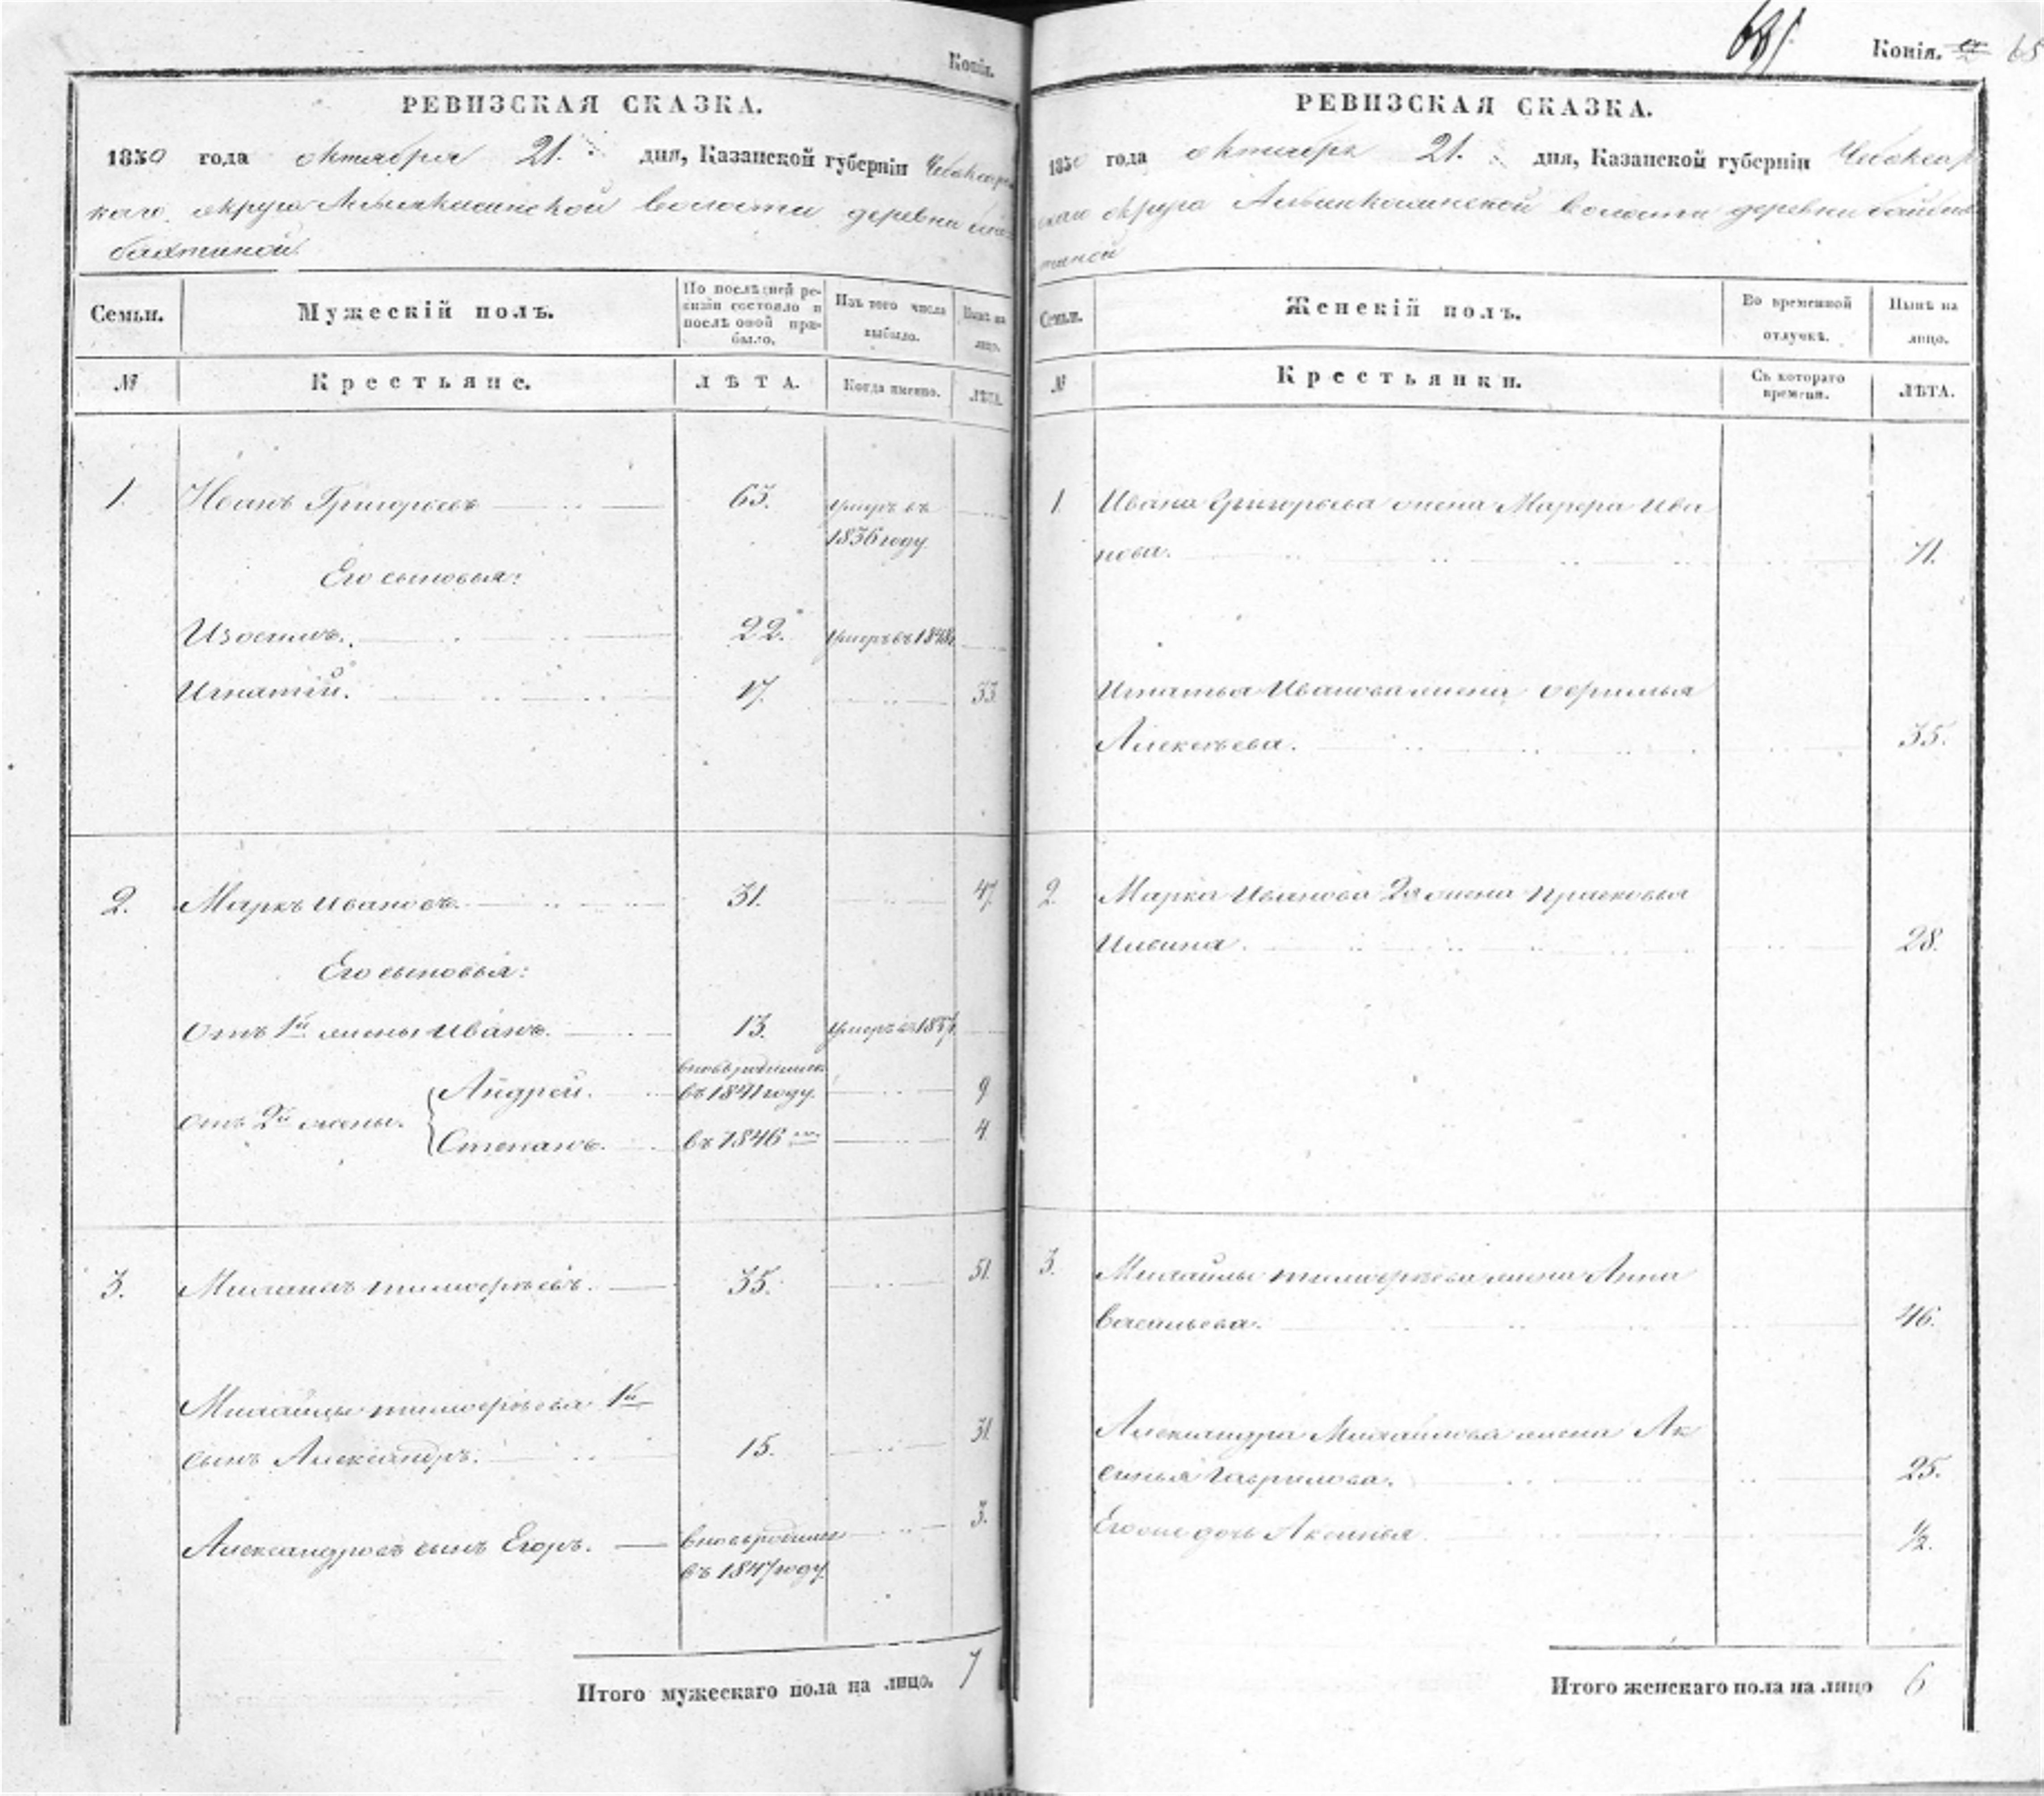 Копія.
РЕВИЗСКАЯ СКАЗКА.
1850 года октября 21. дня, Казанской губерніи Чебоксарс
каго округа волости деревни
бахтиной
Семьи.
Мужескій полъ.
По послѣдней ре-
визіи состояло и
послѣ оной при-
было.
Изъ того числа
выбыло.
Нынѣ на
лицо.
№
Крестьяне.
ЛѢТА.
Когда именно.
ЛѢТА.
1. Иванъ Григорьевъ 63. умеръ въ
1836 году.
Его сыновья:
22. умеръ въ 1848
Игнатій. 17. 33
2. Маркъ Ивановъ. 31. 47
Его сыновья:
Отъ 1й жены Иванъ. 13. умеръ въ
вновь родился
Андрей. въ 1841 году. 9
отъ 2й жены.
Степанъ. въ 1846 4
3. Михаилъ Тимофѣевъ. 35. 51
Михаилы Тимофѣева 1й
сынъ Александръ. 15. 31
Александровъ сынъ Егоръ. вновь родился 3.
въ 1847 году
Итого мужескаго пола на лицо. 7
Копія. 65
РЕВИЗСКАЯ СКАЗКА.
1850 года октября 21. дня, Казанской губерніи Чебоксар
скаго округа волости деревни
тиной
Семьи.
Женскій полъ.
Во временной
отлучкѣ.
Нынѣ на
лицо.
№
Крестьянки.
Съ котораго
времени.
ЛѢТА.
1 Ивана Григорьева жена Марфа Ива
нова. 71.
Игнатья Иванова жена Офимья
Алексѣева. 35.
2 Марка Иванова 2я жена Прасковья
Ильина. 28.
3. Михайлы Тимофѣева жена Анна
Васильева. 46.
Александра Михайлова жена Ак
синья Гаврилова. 25.
Его же дочь Аксинья 1/2.
Итого женскаго пола на лицо 6